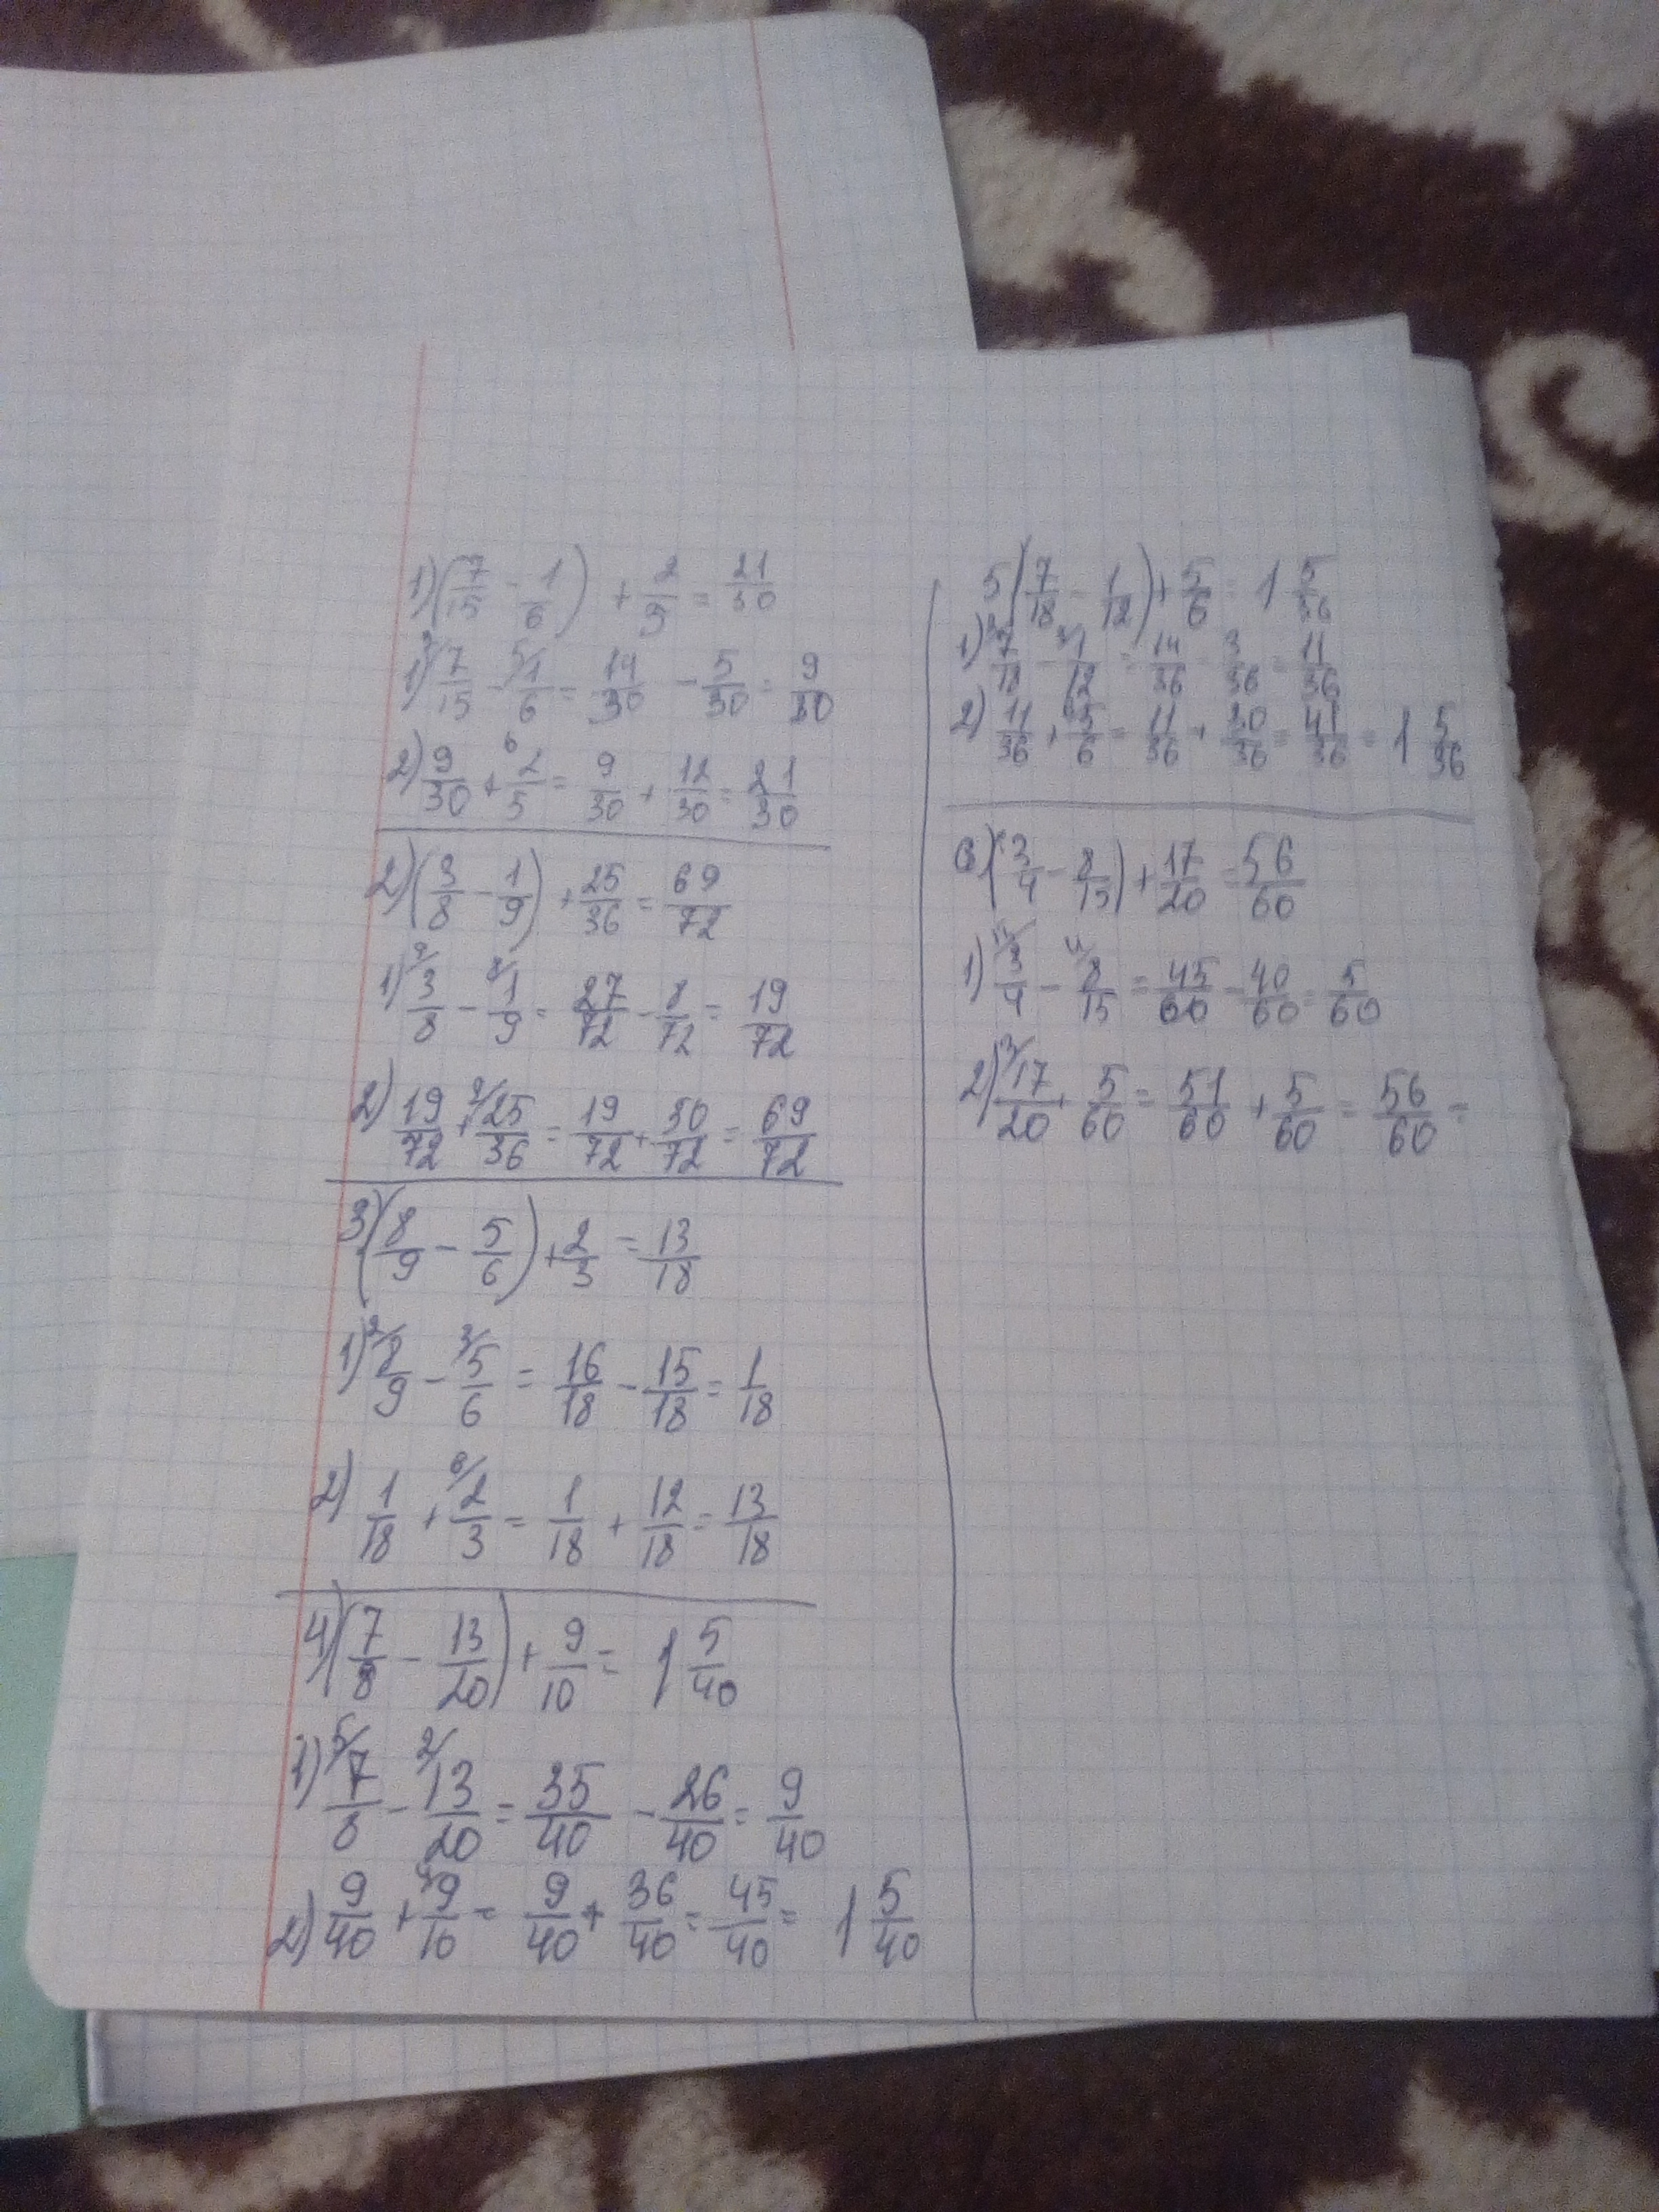 1) (7/15 - 1/6) + 2/5 = 21/30
1) 2/ 7/15 - 5/ 1/6 = 14/30 - 5/30 = 9/30
2) 9/30 + 6 2/5 = 9/30 + 12/30 = 21/30
2) (3/8 - 1/9) + 25/36 = 69/72
1) 9/ 3/8 - 8/ 1/9 = 27/72 - 8/72 = 19/72
2) 19/72 + 2/ 25/36 = 19/72 + 50/72 = 69/72
3) (8/9 - 5/6) + 2/3 = 13/18
1) 2/ 8/9 - 3/ 5/6 = 16/18 - 15/18 = 1/18
2) 1/18 + 6/ 2/3 = 1/18 + 12/18 = 13/18
4) (7/8 - 13/20) + 9/10 = 1 5/40
1) 5/ 7/8 - 2/ 13/20 = 35/40 - 26/40 = 9/40
2) 9/40 + 9/10 = 9/40 + 36/40 = 45/40 = 1 5/40
5 (7/18 - 1/12) + 5/6 = 1 5/36
1) 7/18 - 3/ 1/12 = 14/36 - 3/36 = 11/36
2) 11/36 + 5/6 = 11/36 + 30/36 = 41/36 = 1 5/36
6) (3/4 - 8/15) + 17/20 = 56/60
1) 3/4 - 8/15 = 45/60 - 40/60 = 5/60
2) 3/ 17/20 + 5/60 = 51/60 + 5/60 = 56/60 =